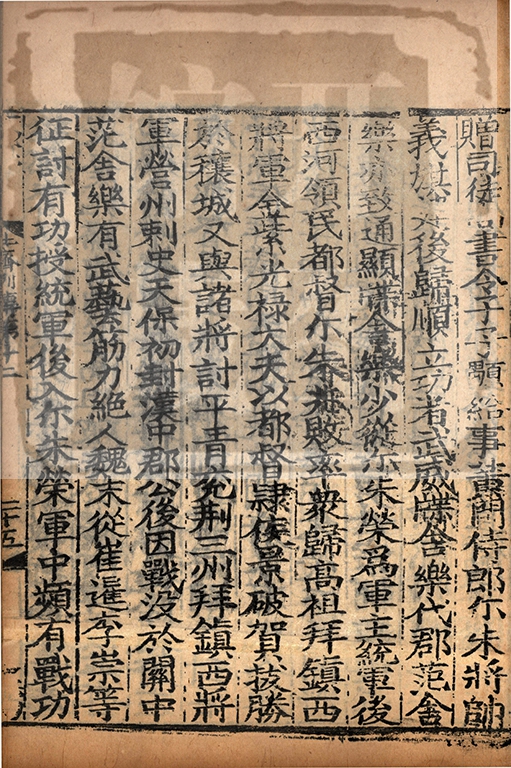 贈司徒尚書令子子顥給事黃門侍郎尒朱將帥
義旗之後歸順立功者武威牒舍樂代郡范舍
樂亦致通顯牒舍樂少從尒朱榮爲軍主統軍後
西河領民都督尒朱兆敗率衆歸髙祖拜鎮西
將軍金紫光禄大夫以都督隸侯景破賀拔勝
於穰城又與諸將討平青兖荆三州拜鎮西將
軍營州刺史天保初封漢中郡公後因戰没於關中
范舍樂有武藝筋力絶人魏末從崔暹李崇等
征討有功授統軍後入尒朱榮軍中頻有戰功